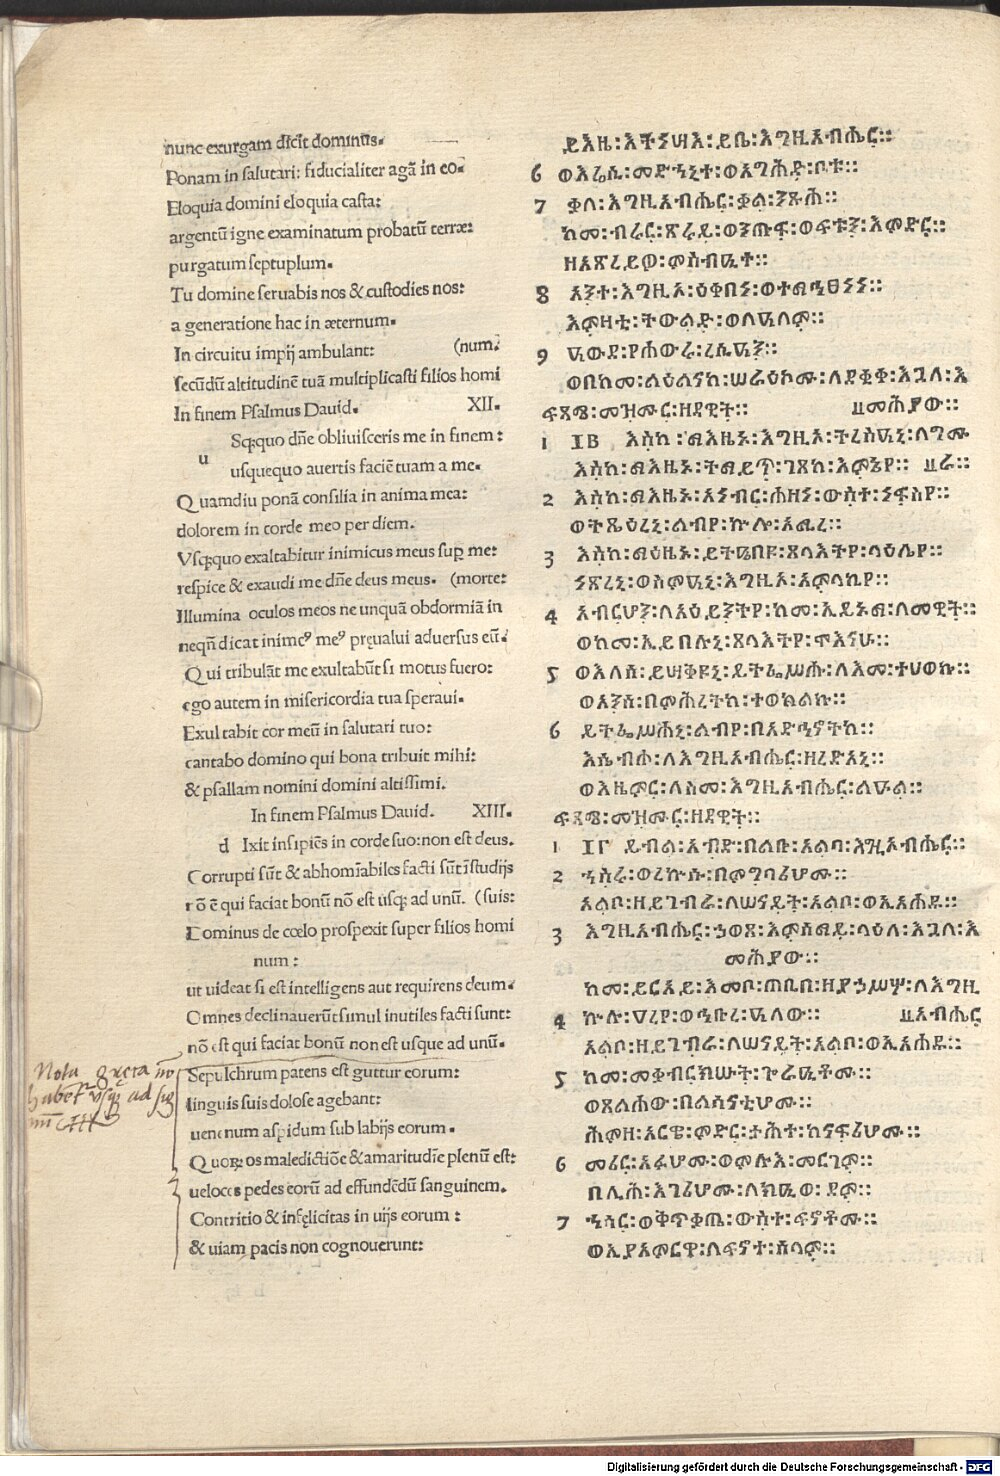 nunc exurgam dicit dominus.
Ponam in salutari: fiducialiter agã in eo.
Eloquia domini eloquia casta:
argentũ igne examinatum probatũ terræ:
purgatum septuplum.
Tu domine seruabis nos & custodies nos:
a generatione hac in æternum.
In circuitu impij ambulant: (num.
secũdũ altitudinẽ tuã multiplicasti filios homi
In finem Psalmus Dauid. XII.
u Sqꝫquo dñe obliuisceris me in finem:
usquequo auertis faciẽ tuam a me.
Quamdiu ponã consilia in anima mea:
dolorem in corde meo per diem.
Vsqꝫquo exaltabitur inimicus meus sup me:
respice & exaudi me dñe deus meus. (morte:
Illumina oculos meos ne unquã obdormiã in
neqñ dicat inimcꝰ meꝰ pręualui aduersus eũ.
Qui tribulãt me exultabũt si motus fuero:
ego autem in misericordia tua speraui.
Exultabit cor meũ in salutari tuo:
cantabo domino qui bona tribuit mihi:
& psallam nomini domini altissimi.
In finem Psalmus Dauid. XIII.
d Ixit insipiẽs in corde suo: non est deus.
Corrupti sũt & abhomĩabiles facti sũt ĩ studijs
rõ ẽ qui faciat bonũ nõ est usqꝫ ad unũ. (suis:
Dominus de cœlo prospexit super filios homi
num:
ut uideat si est intelligens aut requirens deum.
Omnes declinauerũt simul inutiles facti sunt:
nõ est qui faciat bonũ non est usque ad unũ.
Sepulchrum patens est guttur eorum:
linguis suis dolose agebant:
uenenum aspidum sub labijs eorum.
Quorꝫ os maledictiõe & amaritudĩe plenũ est:
ueloces pedes eorũ ad effundẽdũ sanguinem.
Contritio & infęlicitas in uijs eorum:
& uiam pacis non cognouerunt:
Nota
ad
ይእዜ፡እትነሣእ፡ይቤ፡እግዚአብሔር፡፡
6 ወእሬሲ፡መድኀኒተ፡ወአግሕድ፡ቦቱ፡፡
7 ቃለ፡እግዚአብሔር፡ቃል፡ንጹሕ፡፡
ከመ፡ብሩር፡ጽሩይ፡ወንጡፍ፡ወፍቱን፡እምድር፡፡
ዘአጽረይዎ፡ምስብዒተ፡፡
8 አንተ፡እግዚኦ፡ዕቀበነ፡ወተማኅፀነነ፡፡
እምዛቲ፡ትውልድ፡ወለዓለም፡፡
9 ዓውደ፡የሐውሩ፡ረሲዓን፡፡
ወበከመ፡ልዕልናከ፡ሠራዕኮሙ፡ለደቂቀ፡እጓለ፡እ
ፍጻሜ፡መዝሙር፡ዘዳዊት፡፡ መሕያው፡፡
1 ΙΒ እስከ፡ማእዜኑ፡እግዚኦ፡ትረስዓኒ፡ለግሙ
እስከ፡ማእዜኑ፡ትመይጥ፡ገጸከ፡እምኔየ፡፡ ራ፡፡
2 እስከ፡ማእዜኑ፡አነብር፡ሐዘነ፡ውስተ፡ነፍስየ፡፡
ወትጼዕረኒ፡ልብየ፡ኵሎ፡አሚረ፡፡
3 እስከ፡ማዕዜኑ፡ይትዔበዩ፡ጸላእትየ፡ላዕሌየ፡፡
ነጽረኒ፡ወስምዓኒ፡እግዚኦ፡አምላኪየ፡፡
4 አብርሆን፡ለአዕይንትየ፡ከመ፡ኢይኑማ፡ለመዊት፡፡
ወከመ፡ኢይበሉኒ፡ጸላእትየ፡ሞእናሁ፡፡
5 ወእለሰ፡ይሣቅዩኒ፡ይትፌሥሑ፡ለእመ፡ተሀወኩ፡፡
ወአንሰ፡በምሕረትከ፡ተወከልኩ፡፡
6 ይትፌሣሕኒ፡ልብየ፡በአድኅኖትከ፡፡
እሴብሖ፡ለእግዚአብሔር፡ዘረድአኒ፡፡
ወእዜምር፡ለስመ፡እግዚአብሔር፡ልዑል፡፡
ፍጻሜ፡መዝሙር፡ዘዳዊት፡፡
1 ΙΓ ይብል፡አብድ፡በልቡ፡አልቦ፡እግዚአብሔር፡፡
2 ኀስሩ፡ወረኵሱ፡በምግባሪሆሙ፡፡
አልቦ፡ዘይገብራ፡ለሠናይት፡አልቦ፡ወኢአሐዱ፡፡
3 እግዚአብሔር፡ኃወጸ፡እምሰማይ፡ላዕለ፡እጓለ፡እ
መሕያው፡፡
ከመ፡ይርአይ፡እመቦ፡ጠቢበ፡ዘየኃሥሦ፡ለእግዚ
4 ኵሉ፡ዐረየ፡ወኀቡረ፡ዓለወ፡፡ አብሔር
አልቦ፡ዘይገብራ፡ለሠናይት፡አልቦ፡ወኢአሐዱ፡፡
5 ከመ፡መቃብር፡ክሡት፡ጐራዒቶሙ፡፡
ወጸልሐው፡በልሳናቲሆሙ፡፡
ሕምዘ፡አርዌ፡ምድር፡ታሕተ፡ከናፍሪሆሙ፡፡
6 መሪር፡አፉሆሙ፡ወምሉእ፡መርገም፡፡
በሊሕ፡እገሪሆሙ፡ለክዒወ፡ደም፡፡
7 ኀሳር፡ወቅጥቃጤ፡ውስተ፡ፍኖቶሙ፡፡
ወኢያአምርዋ፡ለፍኖተ፡ሰላም፡፡
Digitalisierung gefördert durch die Deutsche Forschungsgemeinschaft - DFG